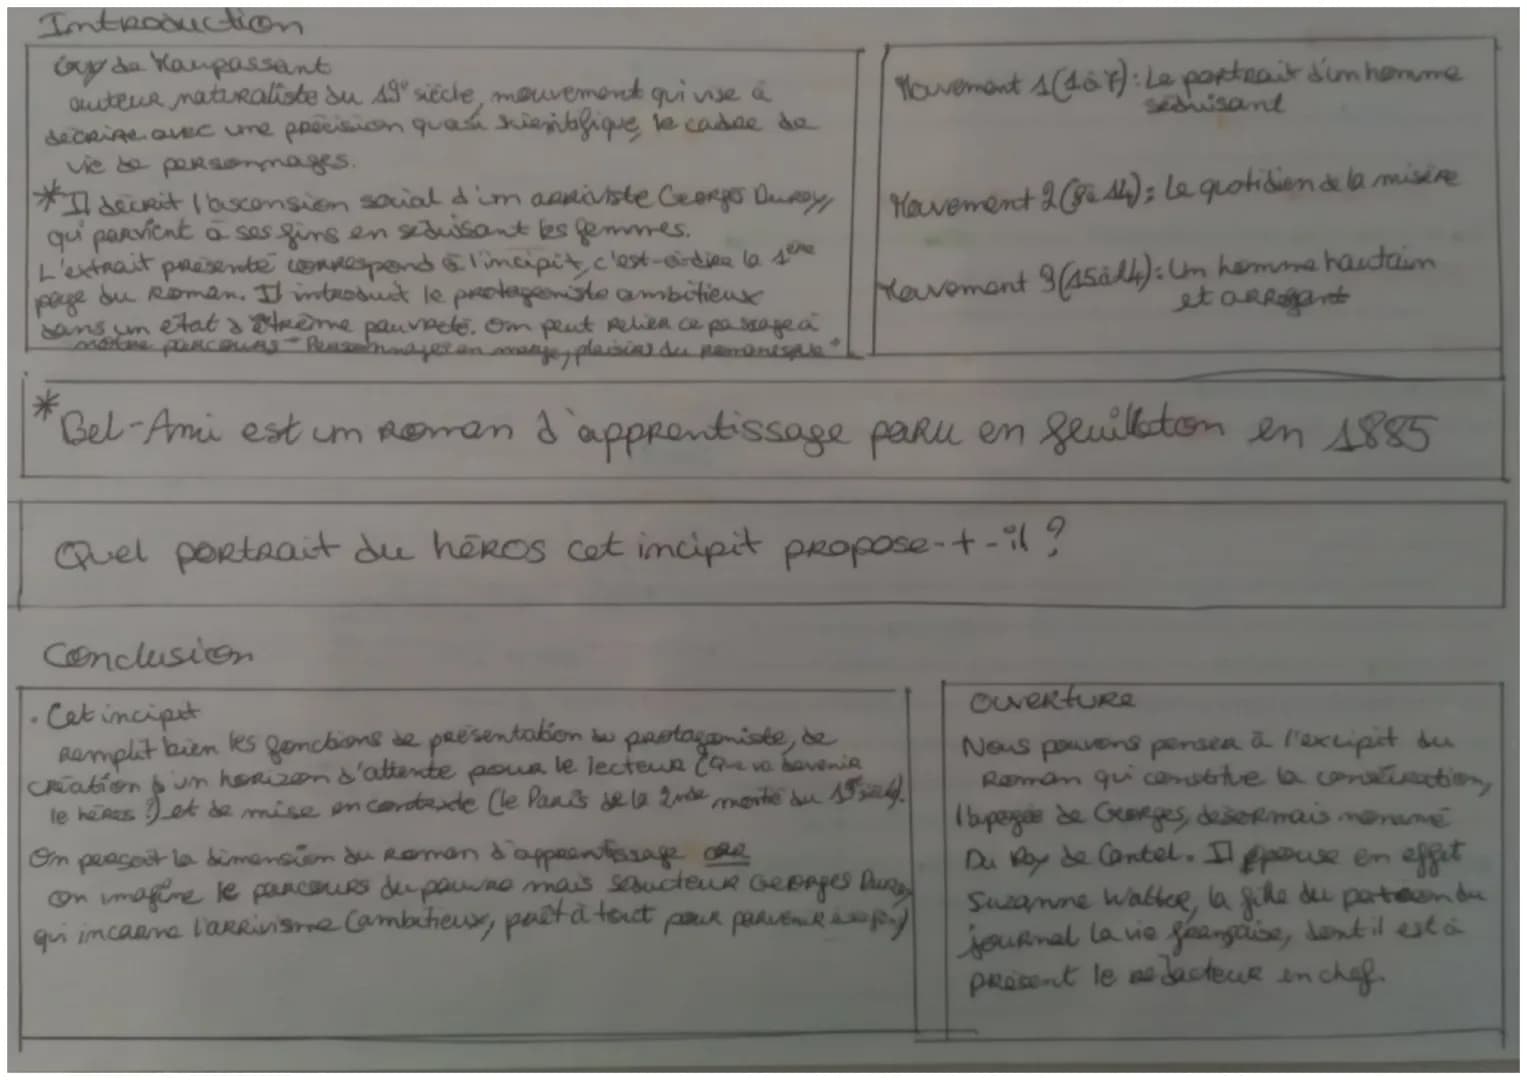 Introduction
Guy de Maupassant
auteur naturaliste du 19e siècle, mouvement qui vise à
décrire avec une précision quasi scientifique, le cadre de
vie de personnages.
* Il décrit l'ascension social d'un arriviste Georges Duroy,
qui parvient à ses fins en séduisant les femmes.
L'extrait présenté correspond à l'incipit, c'est-à-dire la 1ère
page du roman. Il introduit le protagoniste ambitieux
dans un état d'extrême pauvreté. On peut relier ce passage à
notre parcours "Personnages en marge, plaisirs du romanesque"
Mouvement 1 (1 à 7) : Le portrait d'un homme
séduisant
Mouvement 2 (8 à 14) : Le quotidien de la misère
Mouvement 3 (15 à 24) : Un homme hautain
et arrogant
* Bel-Ami est un roman d'apprentissage paru en feuilleton en 1885
Quel portrait du héros cet incipit propose-t-il ?
Conclusion
. Cet incipit
remplit bien les fonctions de présentation du protagoniste, de
création d'un horizon d'attente pour le lecteur (que va devenir
le héros ?) et de mise en contexte (le Paris de la 2nde moitié du 19e
On perçoit la dimension du roman d'apprentissage car
on imagine le parcours du pauvre mais séducteur Georges Duroy
qui incarne l'arrivisme (ambitieux, prêt à tout pour parvenir à
Ouverture
Nous pouvons penser à l'excipit du
roman qui constitue la consécration,
l'apogée de Georges, désormais nommé
Du Roy de Cantel. Il épouse en effet
Suzanne Walter, la fille du patron du
journal La vie française, dont il est à
présent le rédacteur en chef.